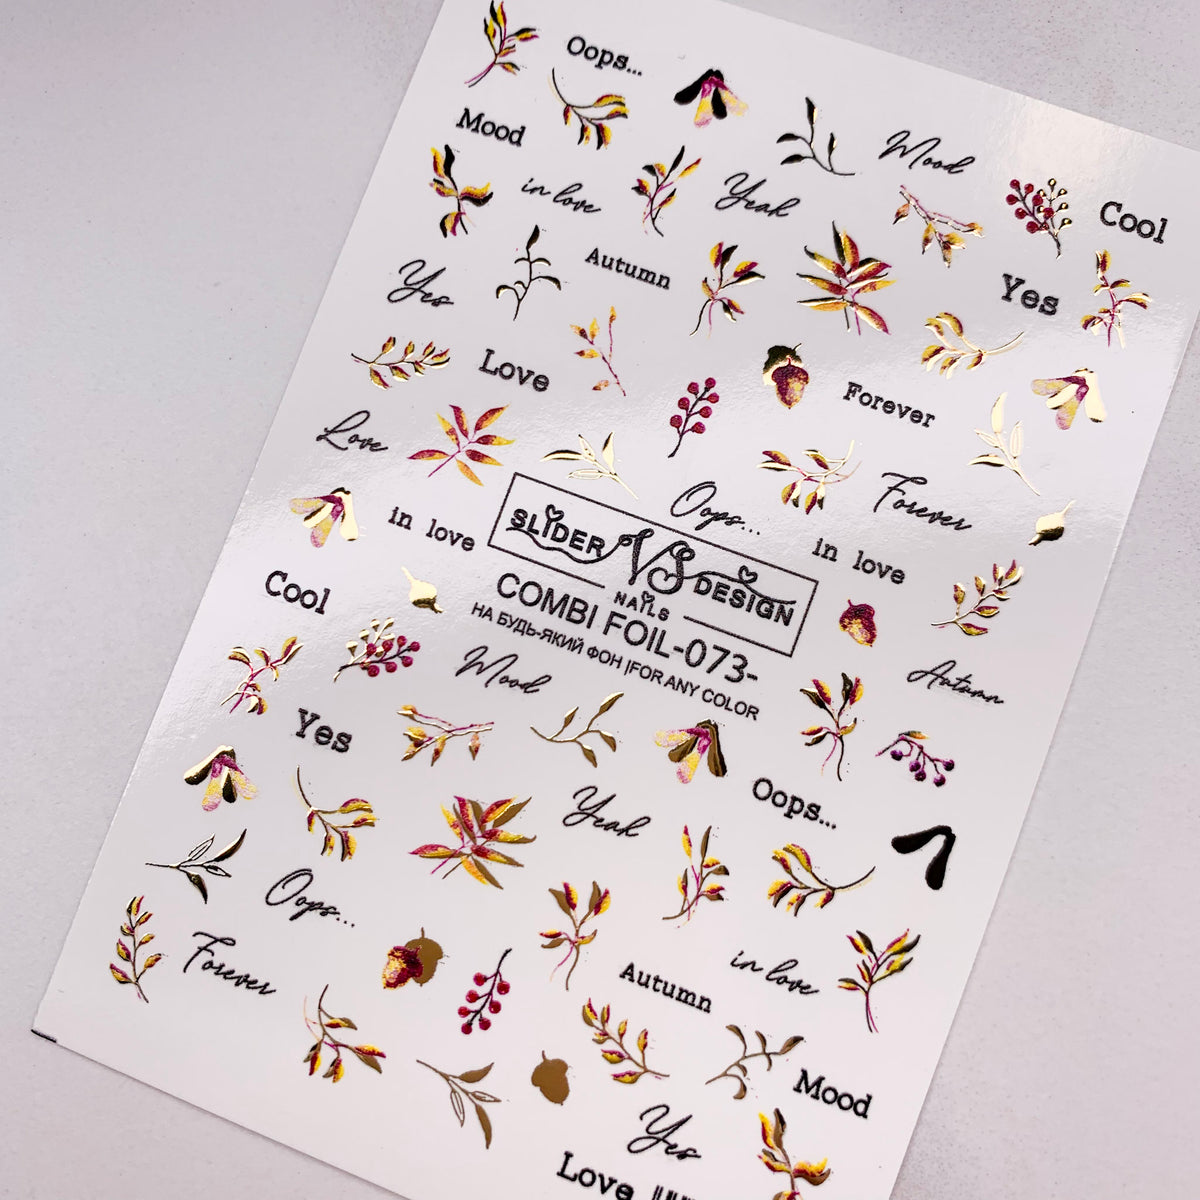 Oops...
Mood
Mood
in love
Yeah
Cool
Autumn
Yes
Yes
Love
Forever
Love
Oops...
Forever
in love
in love
SLIDER VS DESIGN
NAILS
COMBI FOIL-073-
НА БУДЬ-ЯКИЙ ФОН |FOR ANY COLOR
Cool
Mood
Autumn
Yes
Oops...
Yeah
Oops...
Forever
in love
Autumn
Mood
Yes
Love